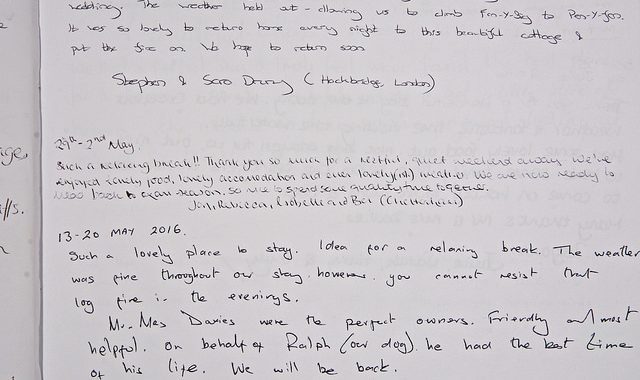 wedding. The weather held out - allowing us to climb Fan-Y-Big to Pen-Y-Fan.
It was so lovely to return home every night to this beautiful cottage &
put the fire on. We hope to return soon
Stephen & Sara (London)
29th - 2nd May.
Such a relaxing break!! Thank you so much for a restful, quiet weekend away. We've
enjoyed lovely food, lovely accomodation and even lovely(ish) weather. We are now ready to
head back to exam season, so nice to spend some quality time together.
Rebecca, and Ben
13-20 MAY 2016.
Such a lovely place to stay. Idea for a relaxing break. The weather
was fine throughout our stay, however, you cannot resist that
log fire in the evenings.
Mr. Mes Davies were the perfect owners. Friendly and most
helpful. On behalf of Ralph (our dog) he had the best time
of his life. We will be back.